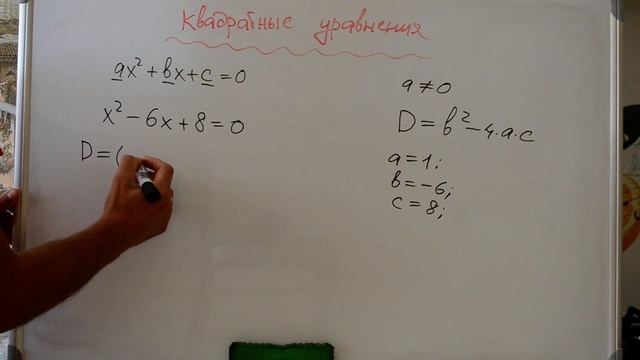 Квадратные уравнения
ax² + bx + c = 0
x² − 6x + 8 = 0
D = (
a ≠ 0
D = b² − 4·a·c
a = 1;
b = −6;
c = 8;